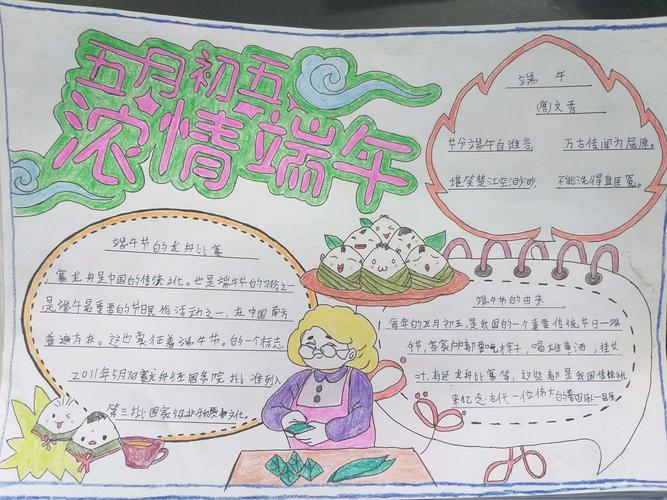 五月初五
浓情端午
端午
唐文秀
节分端午自谁言，万古传闻为屈原。
堪笑楚江空渺渺，不能洗得直臣冤。
端午节的龙舟比赛
赛龙舟是中国的传统文化。也是端午节的习俗之一
是端午最重要的节日民俗活动之一，在中国南方
普遍存在。这也象征着端午节。的一个标志
2011年5月赛龙舟经国务院批准列入
第三批国家级非物质文化。
端午节的由来
每年的五月初五，是我国的一个重要传统节日—端
午节，家家户户都要吃粽子，喝雄黄酒，挂艾
叶，有还龙舟比赛等，这些都是我国传统
来忆念古代一位伟大的爱国诗人—屈原